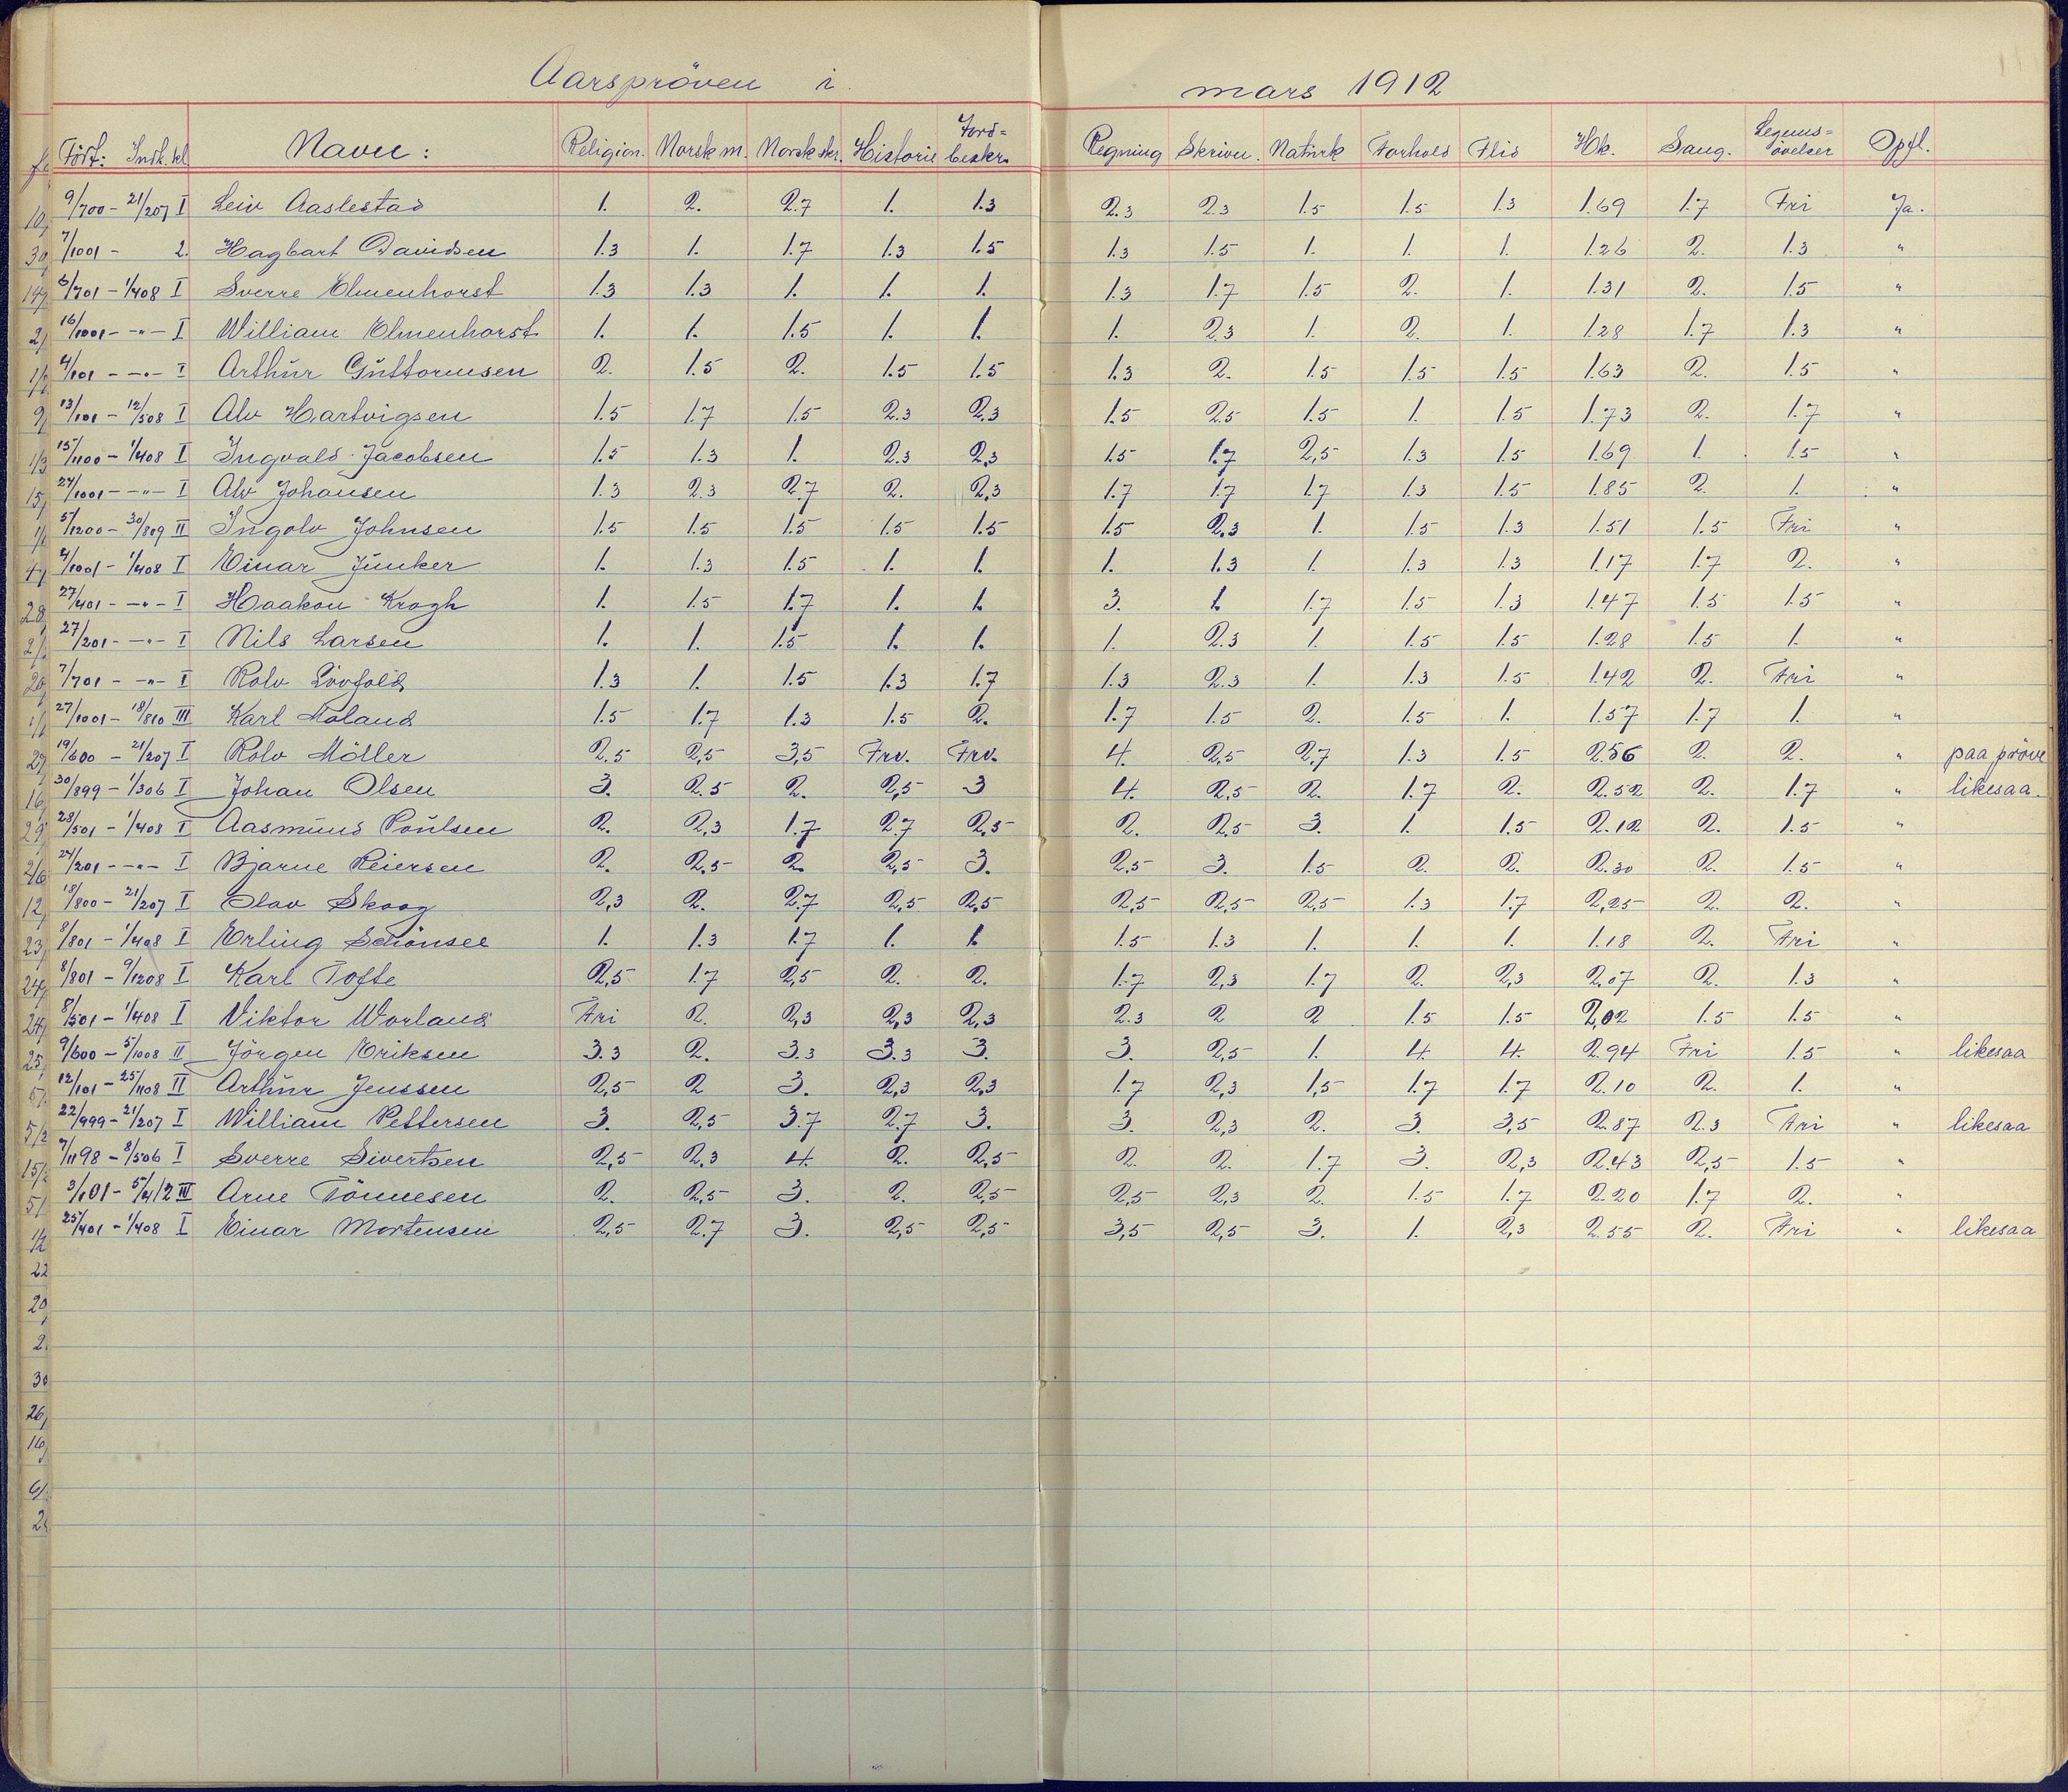 Aarspröven i mars 1912
Född: Indk. kl. Navn: Religion. Norsk m. Norsk skr. Historie Jord=beskr. Regning Skrivn. Naturk Forhold Flid Hk. Sang. Legems=övelser Opfl.
9/700 - 21/207 I Leiv Aaslestad 1. 2. 2.7 1. 1.3 2.3 2.3 1.5 1.5 1.3 1.69 1.7 Fri Ja.
7/1001 - 2. Hagbart Davidsen 1.3 1. 1.7 1.3 1.5 1.3 1.5 1. 1. 1. 1.26 2. 1.3 "
6/701 - 1/408 I Sverre Elmenhorst 1.3 1.3 1. 1. 1. 1.3 1.7 1.5 2. 1. 1.31 2. 1.5 "
16/1001 - -"- I William Elmenhorst 1. 1. 1.5 1. 1. 1. 2.3 1. 2. 1. 1.28 1.7 1.3 "
4/101 - -"- I Arthur Guttormsen 2. 1.5 2. 1.5 1.5 1.3 2. 1.5 1.5 1.5 1.63 2. 1.5 "
13/101 - 12/508 I Alv Hartvigsen 1.5 1.7 1.5 2.3 2.3 1.5 2.5 1.5 1. 1.5 1.73 2. 1.7 "
15/1100 - 1/408 I Ingvald Jacobsen 1.5 1.3 1. 2.3 2.3 1.5 1.7 2,5 1.3 1.5 1.69 1. 1.5 "
24/1001 - -"- I Alv Johansen 1.3 2.3 2.7 2. 2,3 1.7 1.7 1.7 1.3 1.5 1.85 2. 1. "
5/1200 - 30/809 II Ingolv Johnsen 1.5 1.5 1.5 1.5 1.5 1.5 2,3 1. 1.5 1.3 1.51 1.5 Fri "
4/1001 - 1/408 I Einar Junker 1. 1.3 1.5 1. 1. 1. 1.3 1. 1.3 1.3 1.17 1.7 2. "
27/401 - -"- I Haakon Krogh 1. 1.5 1.7 1. 1. 3. 1. 1.7 1.5 1.3 1.47 1.5 1.5 "
27/201 - -"- I Nils Larsen 1. 1. 1.5 1. 1. 1. 2.3 1. 1.5 1.5 1.28 1.5 1. "
7/701 - -"- I Rolv Lövfold 1.3 1. 1.5 1.3 1.7 1.3 2.3 1. 1.3 1.5 1.42 2. Fri "
27/1001 - 18/810 III Karl Moland 1.5 1.7 1.3 1.5 2. 1.7 1.5 2. 1.5 1. 1.57 1.7 1. "
19/600 - 21/207 I Rolv Möller 2.5 2,5 3,5 Frv. Frv. 4. 2,5 2,7 1.3 1.5 2.56 2. 2. " paa pröve
30/899 - 1/306 I Johan Olsen 3. 2.5 2. 2,5 3 4. 2,5 2. 1.7 2. 2.52 2. 1.7 " likesaa.
28/501 - 1/408 I Aasmund Poulsen 2. 2,3 1.7 2.7 2,5 2. 2,5 3. 1. 1.5 2.12 2. 1.5 "
24/201 - -"- I Bjarne Reiersen 2. 2,5 2. 2,5 3. 2,5 3. 1.5 2. 2. 2.30 2. 1.5 "
18/800 - 21/207 I Olav Skoog 2,3 2. 2.7 2,5 2,5 2,5 2,5 2,5 1.3 1.7 2,25 2. 2. "
8/801 - 1/408 I Erling Schönsee 1. 1.3 1.7 1. 1. 1.5 1.3 1. 1. 1. 1.18 2. Fri "
8/801 - 9/1208 I Karl Tofte 2,5 1.7 2,5 2. 2. 1.7 2,3 1.7 2. 2,3 2,07 2. 1.3 "
8/501 - 1/408 I Viktor Worland Fri 2. 2,3 2,3 2,3 2.3 2 2 1.5 1.5 2,02 1.5 1.5 "
9/600 - 5/1008 II Jörgen Eriksen 3.3 2. 3.3 3.3 3. 3. 2,5 1. 4. 4. 2.94 Fri 1.5 " likesaa
12/101 - 25/1108 II Arthur Jenssen 2,5 2 3. 2,3 2,3 1.7 2,3 1,5 1.7 1.7 2.10 2. 1. "
22/999 - 21/207 I William Pettersen 3. 2,5 3.7 2.7 3. 3. 2,3 2. 3. 3,5 2.87 2.3 Fri " likesaa
7/1198 - 8/506 I Sverre Sivertsen 2,5 2,3 4. 2. 2,5 2. 2. 1.7 3. 2,3 2.43 2,5 1.5 "
3/101 - 5/412 III Arne Tönnesen 2. 2,5 3. 2. 2,5 2,5 2,3 2. 1.5 1.7 2.20 1.7 2. "
25/401 - 1/408 I Einar Mortensen 2,5 2.7 3. 2,5 2,5 3,5 2,5 3. 1. 2,3 2.55 2. Fri " likesaa